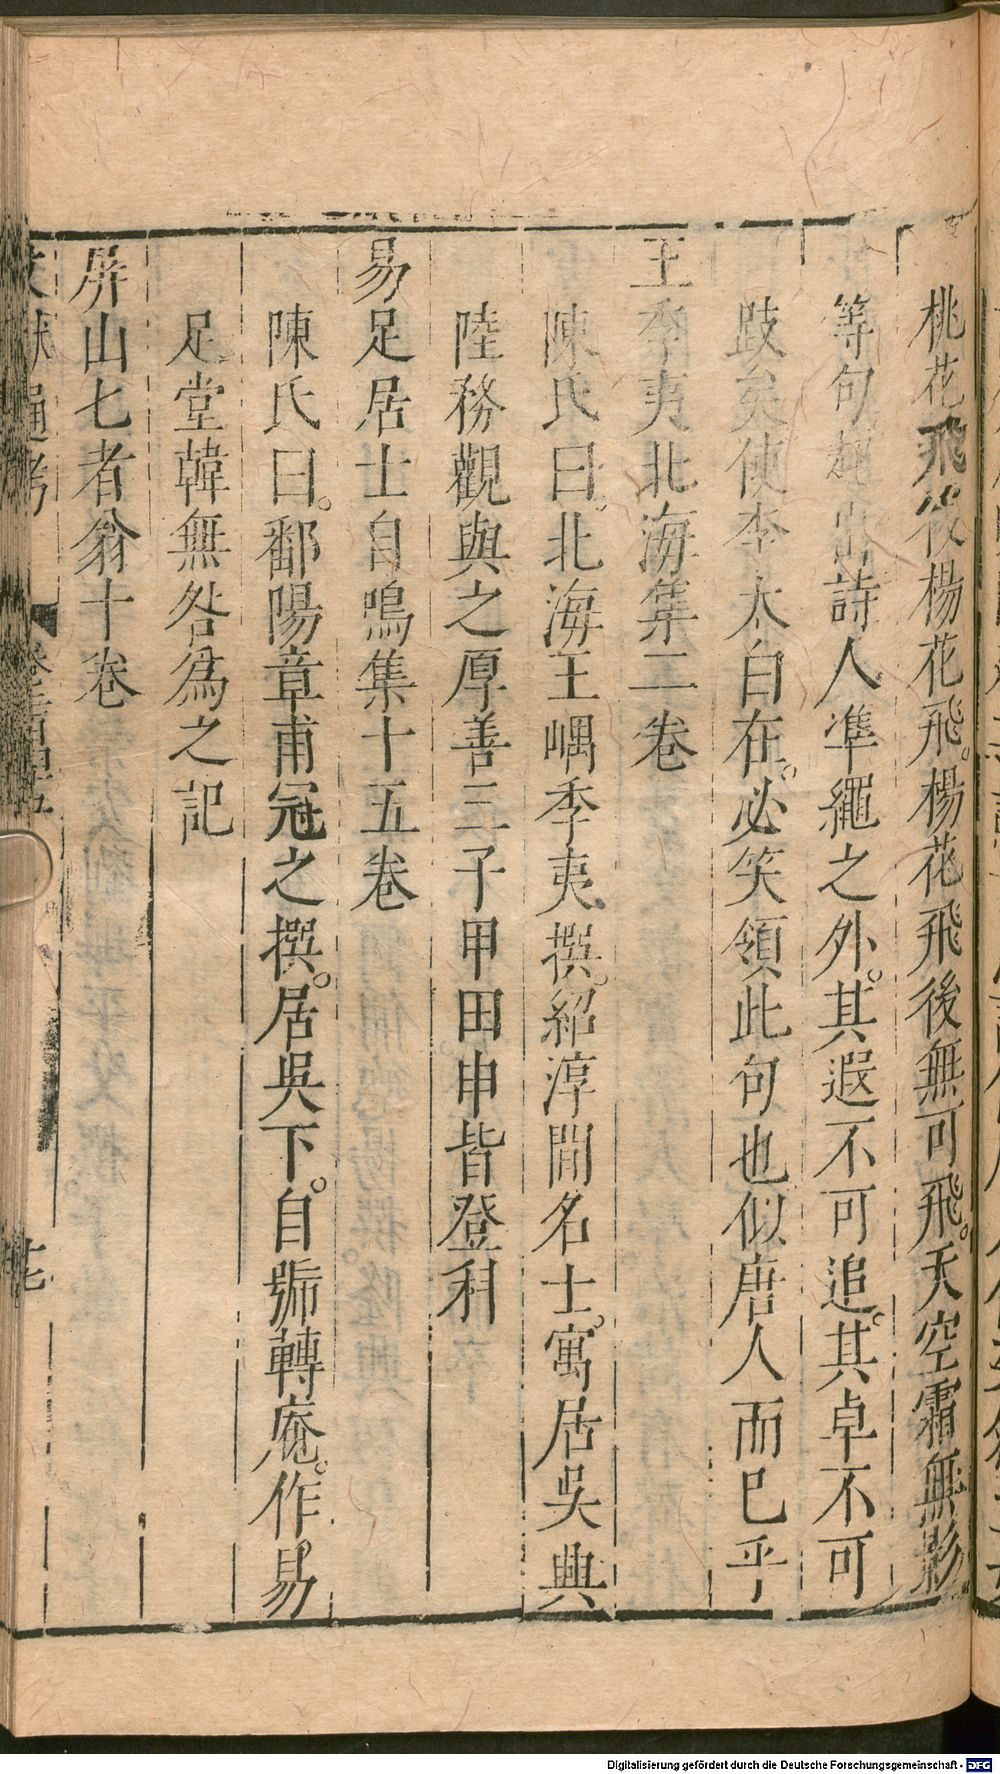 桃花飛後楊花飛。楊花飛後無可飛。天空霜無影
等句超出詩人準繩之外。其遐不可追。其卓不可
跂矣使李太白在。必笑領此句也似唐人而已乎
王季夷北海集二卷
陳氏曰。北海王嵎季夷撰。紹淳間名士。寓居吳興
陸務觀與之厚善三子甲田申皆登科
易足居士自鳴集十五卷
陳氏曰。鄱陽章甫冠之撰。居吳下。自號轉庵。作易
足堂韓無咎為之記
屏山七者翁十卷
文獻通考
Digitalisierung gefördert durch die Deutsche Forschungsgemeinschaft - DFG